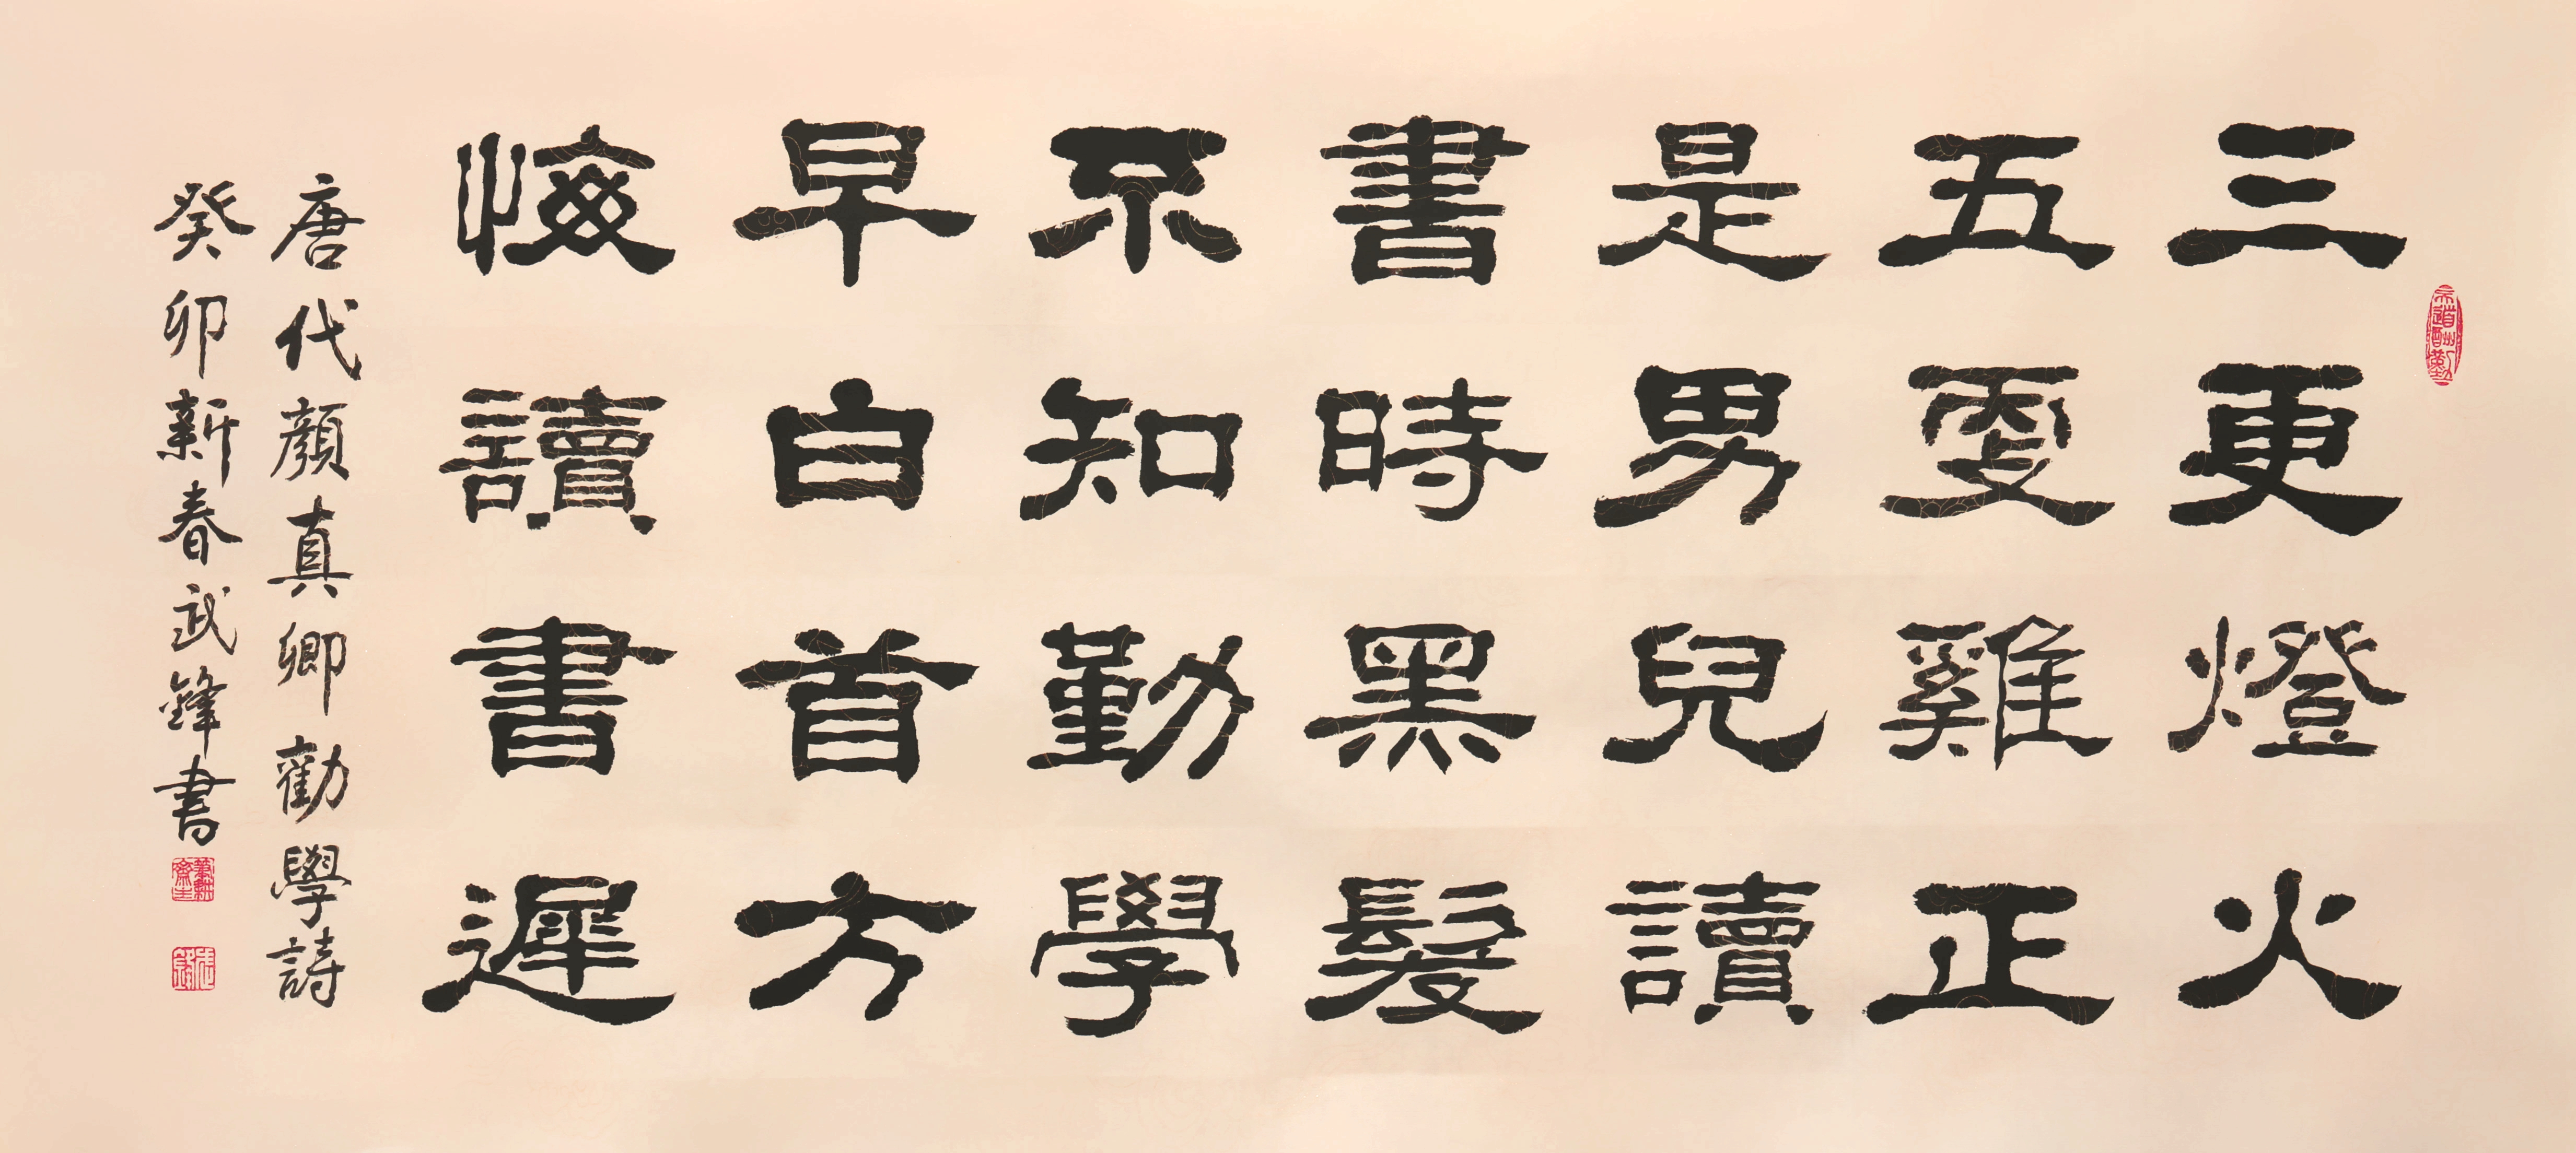 三更燈火
五更雞正
是男兒讀
書時黑髮
不知勤學
早白首方
悔讀書遲
唐代顏真卿勸學詩
癸卯新春武鋒書
天道酬勤